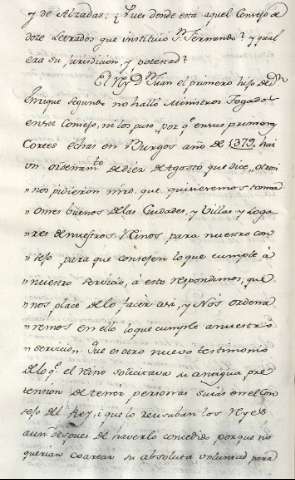 y de Alzadas: ¿Pues donde esta aquel Consejo de
doze Letrados que instituió Sn. Fernando? y qual
era su jurisdicion, y potestad?
El Rey Dn. Juan el primero hijo de Dn.
Enrique segundo no halló Ministros Togados
en este Consejo, ni los puso, por q. en sus primeras
Cortes echas en Burgos año de 1379, hai
un ordenamto. de diez de Agosto que dice, Otrosi
" nos pidieron mrd. que quisieremos tomar
" omes buenos de las Ciudades, y Villas, y Loga
" res de nuestros Reinos para nuestro con
" sejo para que consejen lo que cumple à
" nuestro servicio, à esto respondimos, que
" nos place de lo facer asi, y Nós ordena
" remos en ello lo que cumpla à nuestro
" servicio: Que es otro nuevo testimonio
de lo q. el Reino solicitava su antigua pre
tension de tener personas suias en el Con
sejo del Rey, i que lo reusaban los Reyes
aun despues de haverlo concedido porque no
querian coartar su absoluta voluntad para